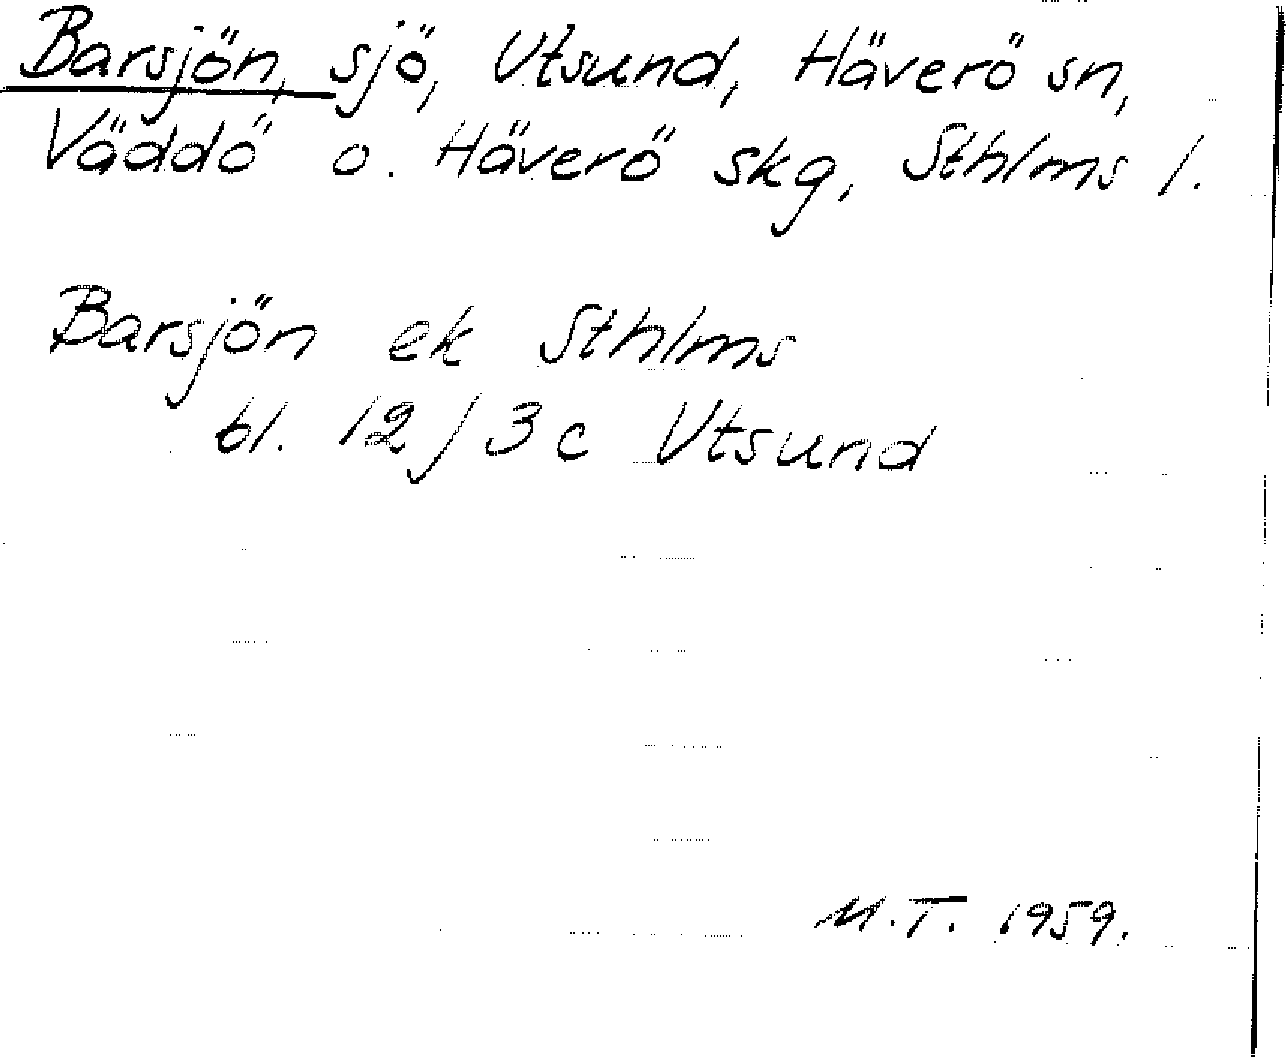 Barsjön, sjö, Utsund, Häverö sn,
Väddö o. Häverö skg, Sthlms l.
Barsjön ek Sthlms
bl. 12 j 3 c Utsund
M.T. 1959.